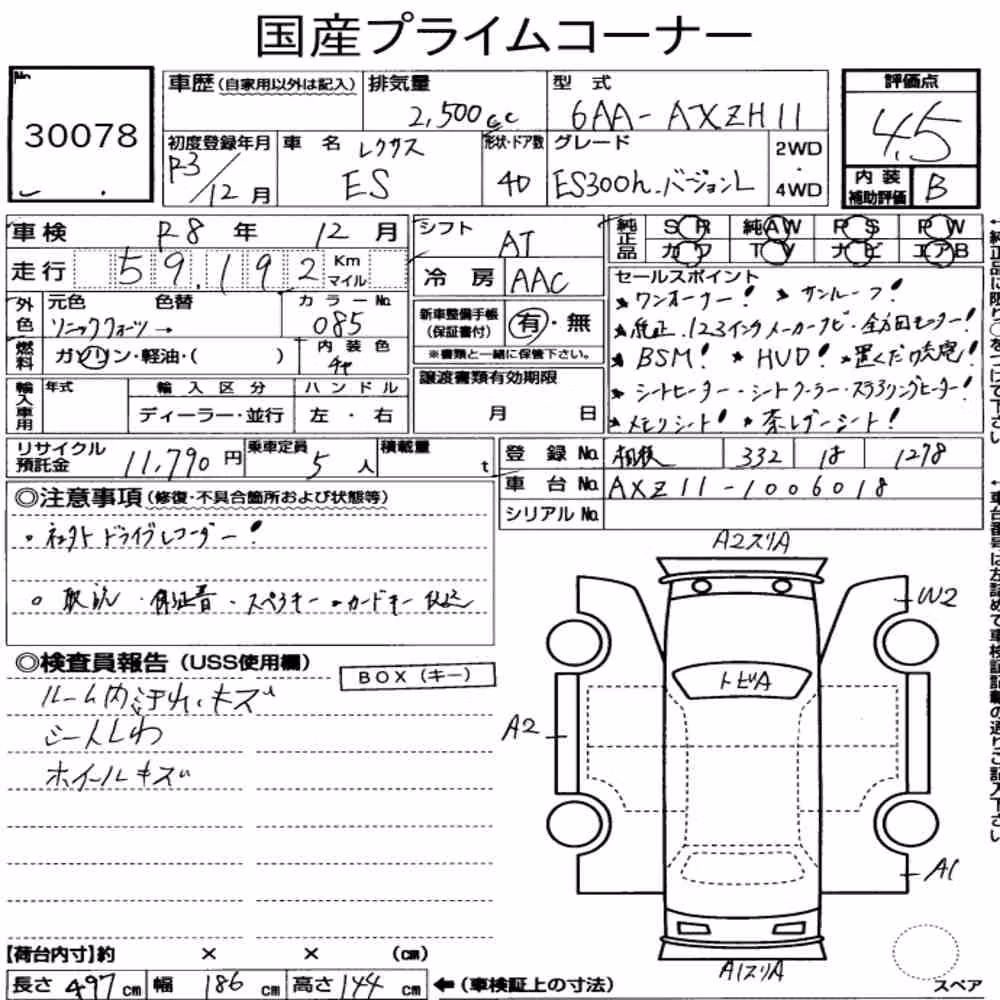 国産プライムコーナー
No.
30078
車歴(自家用以外は記入)
排気量
2,500cc
型式
6AA-AXZH11
評価点
4.5
初度登録年月
R3/12月
車名 レクサス
ES
形状・ドア数
4D
グレード
ES300h バージョンL
2WD
・
4WD
内装
補助評価
B
車検 R8年 12月
走行 59,192 Km
マイル
シフト
AT
冷房 AAC
純正品
SR 純AW PS PW
カワ TV ナビ エアB
外色
元色 色替
ソニッククォーツ→
カラーNo.
085
新車整備手帳
(保証書付)
有・無
※書類と一緒に保管下さい。
燃料
ガソリン・軽油・( )
内装色
茶
セールスポイント
★ワンオーナー! ★サンルーフ!
★純正12.3インチメーカーナビ・全方囲モニター!
★BSM! ★HUD! ★置くだけ充電!
★シートヒーター・シートクーラー・ステアリングヒーター!
★メモリシート! ★茶レザーシート!
輸入車用
年式
輸入区分
ディーラー・並行
ハンドル
左・右
譲渡書類有効期限
月 日
リサイクル
預託金
11,790円
乗車定員
5人
積載量
t
登録No. 相模 332 18 1278
車台No. AXZH11-1006018
シリアルNo.
◎注意事項(修復・不具合箇所および状態等)
○社外ドライブレコーダー!
○取説・保証書・スペアキー・カードキー積込
◎検査員報告(USS使用欄)
BOX(キー)
ルーム内汚れ、キズ
シートしわ
ホイールキズ
A2スリA
W2
トビA
A2
A1
A1スリA
スペア
【荷台内寸】約 × × (cm)
長さ 497cm 幅 186cm 高さ 144cm
←(車検証上の寸法)
↑純正品に限り○をつけて下さい
↑車台番号は左詰めで車検証記載の通りご記入下さい